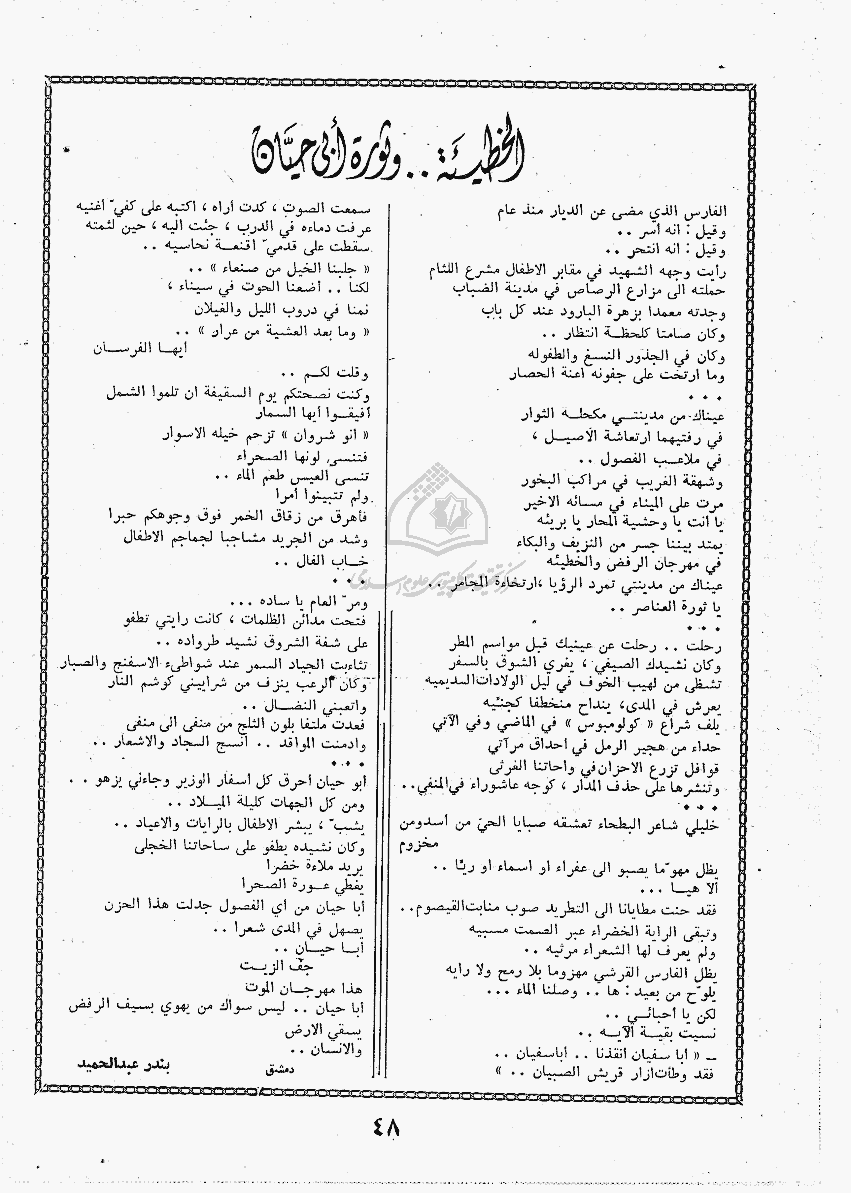 الخطيئة .. وثورة أبي حيّان
الفارس الذي مضى عن الديار منذ عام
وقيل : انه أسر ..
وقيل : انه انتحر ..
رأيت وجهه الشهيد في مقابر الاطفال مشرع اللثام
حملته الى مزارع الرصاص في مدينة الضباب
وجدته معمدا بزهرة البارود عند كل باب
وكان صامتا كلحظة انتظار ..
وكان في الجذور النسغ والطفوله
وما ارتخت على جفونه أعنة الحصار
• • •
عيناك من مدينتي مكحلة الثوار
في رفتيهما ارتعاشة الاصيل ،
في ملاعب الفصول ..
وشهقة الغريب في مراكب البخور
مرت على الميناء في مسائه الاخير
يا أنت يا وحشية المحار يا بريئه
يمتد بيننا جسر من النزيف والبكاء
في مهرجان الرفض والخطيئه
عيناك من مدينتي تمرد الرؤيا ، ارتخاءة المجامر ..
يا ثورة العناصر ..
• • •
رحلت .. رحلت عن عينيك قبل مواسم المطر
وكان نشيدك الصيفي ، يغري الشوق بالسفر
تشظى من لهيب الخوف في ليل الولادات السديميه
يعرش في المدى، ينداح منخطفا كجنيه
يلف شراع « كولومبوس » في الماضي وفي الآتي
حداء من هجير الرمل في أحداق مرآتي
قوافل تزرع الاحزان في واحاتنا الغرثى
وتنشرها على حذف المدار ، كوجه عاشوراء في المنفى..
• • •
خليلي شاعر البطحاء تعشقه صبايا الحيّ من أسد ومن
مخزوم
يظل مهوّما يصبو الى عفراء او اسماء او ريّا ..
ألا هيا ...
فقد حنت مطايانا الى التطريد صوب منابت القيصوم..
وتبقى الراية الخضراء عبر الصمت مسبيه
ولم يعرف لها الشعراء مرثيه ..
يظل الفارس القرشي مهزوما بلا رمح ولا رايه
يلوّح من بعيد : ها .. وصلنا الماء ...
لكن يا أحبائي ..
نسيت بقية الآيه ..
ــ « أبا سفيان أنقذنا .. أبا سفيان ..
فقد وطأت ازار قريش الصبيان .. »
سمعت الصوت ، كدت أراه ، أكتبه على كفيّ أغنيه
عرفت دماءه في الدرب ، جئت اليه ، حين لثمته
سقطت على قدميّ أقنعة نحاسيه ..
« جلبنا الخيل من صنعاء » ..
لكنا .. أضعنا الحوت في سيناء ،
نمنا في دروب الليل والغيلان
« وما بعد العشية من عرار » ..
أيها الفرسان
وقلت لكم ..
وكنت نصحتكم يوم السقيفة أن تلموا الشمل
أفيقوا أيها السمار
« أنو شروان » تزحم خيله الاسوار
فتنسى لونها الصحراء
تنسى العيس طعم الماء ..
ولم تتبينوا أمرا
فأهرق من زقاق الخمر فوق وجوهكم حبرا
وشد من الجريد مشاجبا لجماجم الاطفال
خاب الفال ..
• • •
ومرّ العام يا ساده ...
فتحت مدائن الظلمات ، كانت رايتي تطفو
على شفة الشروق نشيد طرواده ..
تثاءبت الجياد السمر عند شواطىء الاسفنج والصبار
وكان الرعب ينزف من شراييني كوشم النار
وأتعبني النضال ..
فعدت ملتفا بلون الثلج من منفى الى منفى
وأدمنت المواقد .. أنسج السجاد والاشعار ..
• • •
أبو حيان أحرق كل أسفار الوزير وجاءني يزهو ..
ومن كل الجهات كليلة الميلاد ..
يشبّ ، يبشر الاطفال بالرايات والاعياد ..
وكان نشيده يطفو على ساحاتنا الخجلى
يريد ملاءة خضرا
يغطي عورة الصحرا
أبا حيان من أي الفصول جدلت هذا الحزن
يصهل في المدى شعرا ..
أبا حيان ..
جف الزيت
هذا مهرجان الموت
أبا حيان .. ليس سواك من يهوي بسيف الرفض
يسقي الارض
والانسان ..
دمشق
بندر عبدالحميد
٤٨